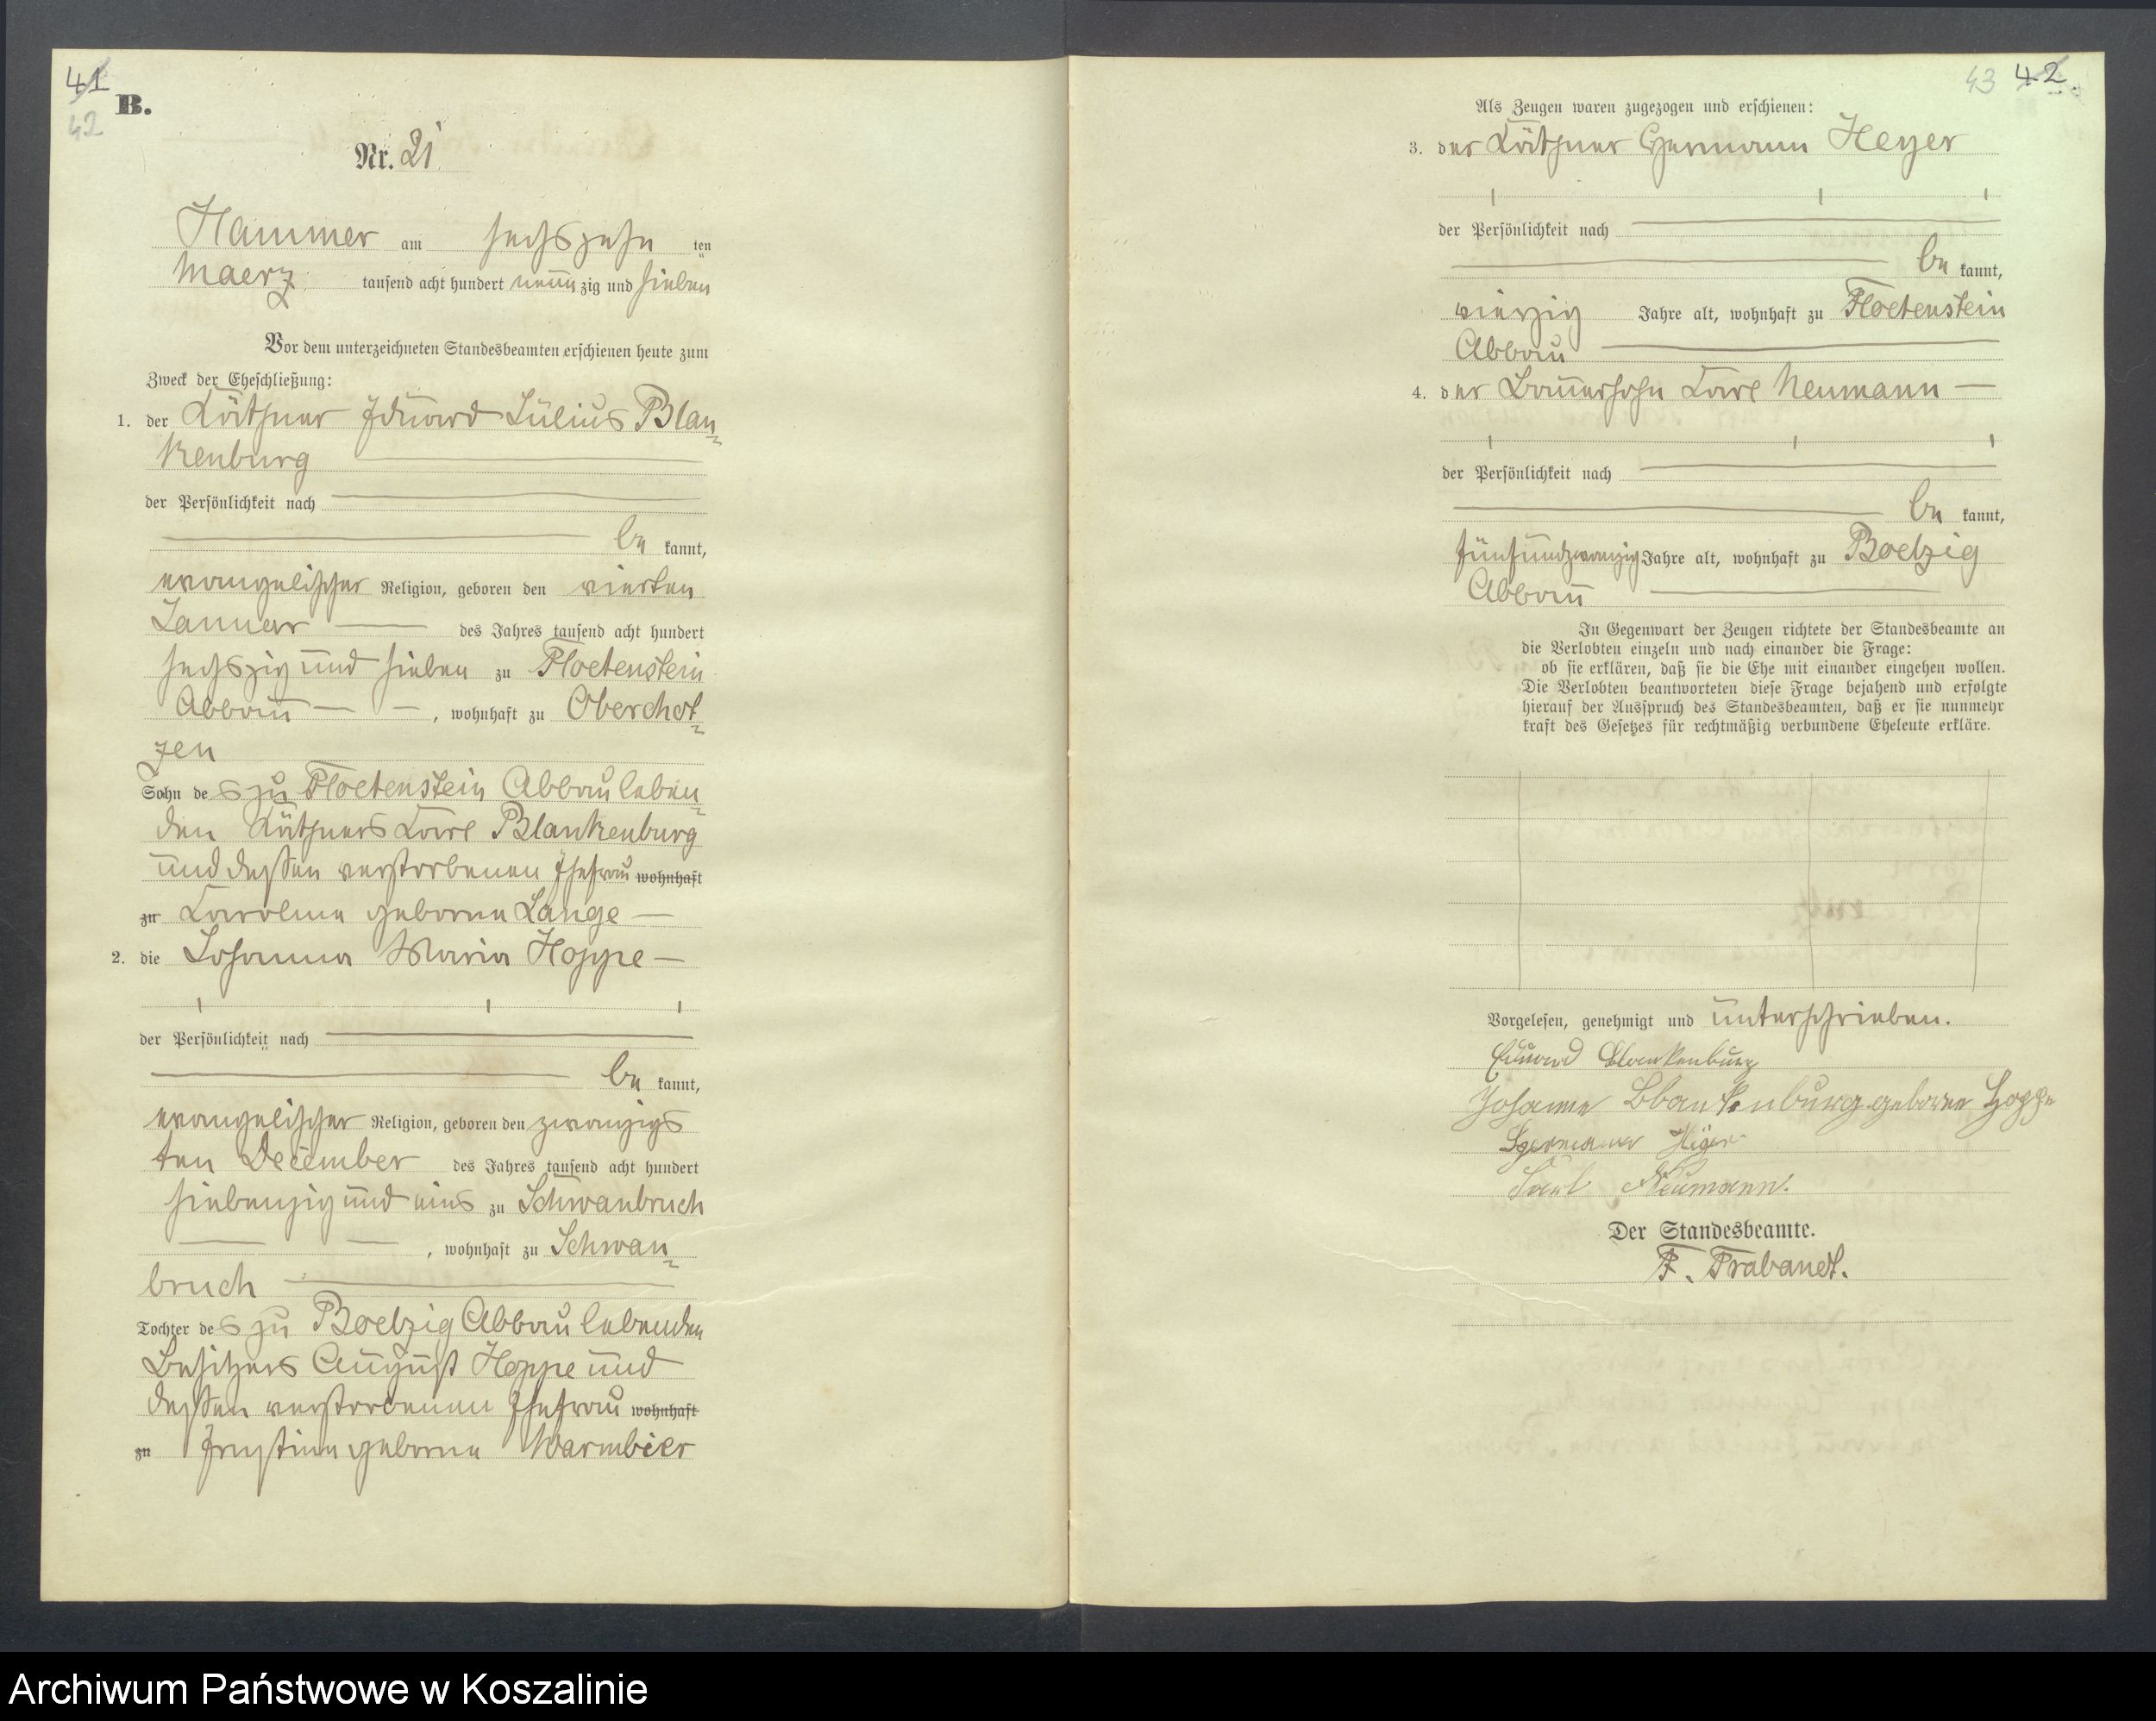 41
42
B.
Nr. 21.
Hammer am sechszehn ten
Maerz tausend acht hundert neunzig und sieben
Vor dem unterzeichneten Standesbeamten erschienen heute zum
Zweck der Eheschließung:
1. der Käthner Eduard Julius Blan=
kenburg
der Persönlichkeit nach
be kannt,
evangelischer Religion, geboren den vierten
Januar des Jahres tausend acht hundert
sechszig und sieben zu Floetenstein
Abbau, wohnhaft zu Oberchot=
zen
Sohn des zu Floetenstein Abbau leben=
den Käthners Carl Blankenburg
und dessen verstorbenen Ehefrau wohnhaft
zu Caroline geborne Lange
2. die Johanna Maria Hoppe
der Persönlichkeit nach
be kannt,
evangelischer Religion, geboren den zwanzigs
ten December des Jahres tausend acht hundert
siebenzig und eins zu Schwanbruch
, wohnhaft zu Schwan=
bruch
Tochter des zu Boelzig Abbau lebenden
Besitzers August Hoppe und
dessen verstorbenen Ehefrau wohnhaft
zu Ernstine geborne Warmbier
43 42.
Als Zeugen waren zugezogen und erschienen:
3. der Käthner Hermann Heyer
der Persönlichkeit nach
be kannt,
vierzig Jahre alt, wohnhaft zu Floetenstein
Abbau
4. der Bauersohn Carl Neumann
der Persönlichkeit nach
be kannt,
fünfundzwanzig Jahre alt, wohnhaft zu Boelzig
Abbau
In Gegenwart der Zeugen richtete der Standesbeamte an
die Verlobten einzeln und nach einander die Frage:
ob sie erklären, daß sie die Ehe mit einander eingehen wollen.
Die Verlobten beantworteten diese Frage bejahend und erfolgte
hierauf der Ausspruch des Standesbeamten, daß er sie nunmehr
kraft des Gesetzes für rechtmäßig verbundene Eheleute erkläre.
Vorgelesen, genehmigt und unterschrieben.
Eduard Blankenburg
Johanne Blankenburg geborne Hoppe
Hermann
Neumann.
Der Standesbeamte.
F. Trabandt.
Archiwum Państwowe w Koszalinie